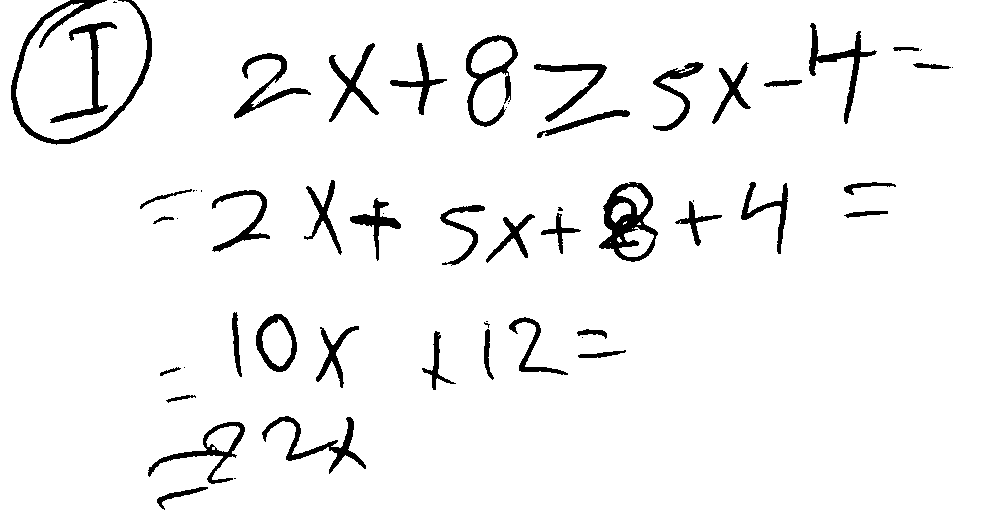 I 2x+8≥5x-4=
=2x+5x+8+4=
=10x+12=
=22x